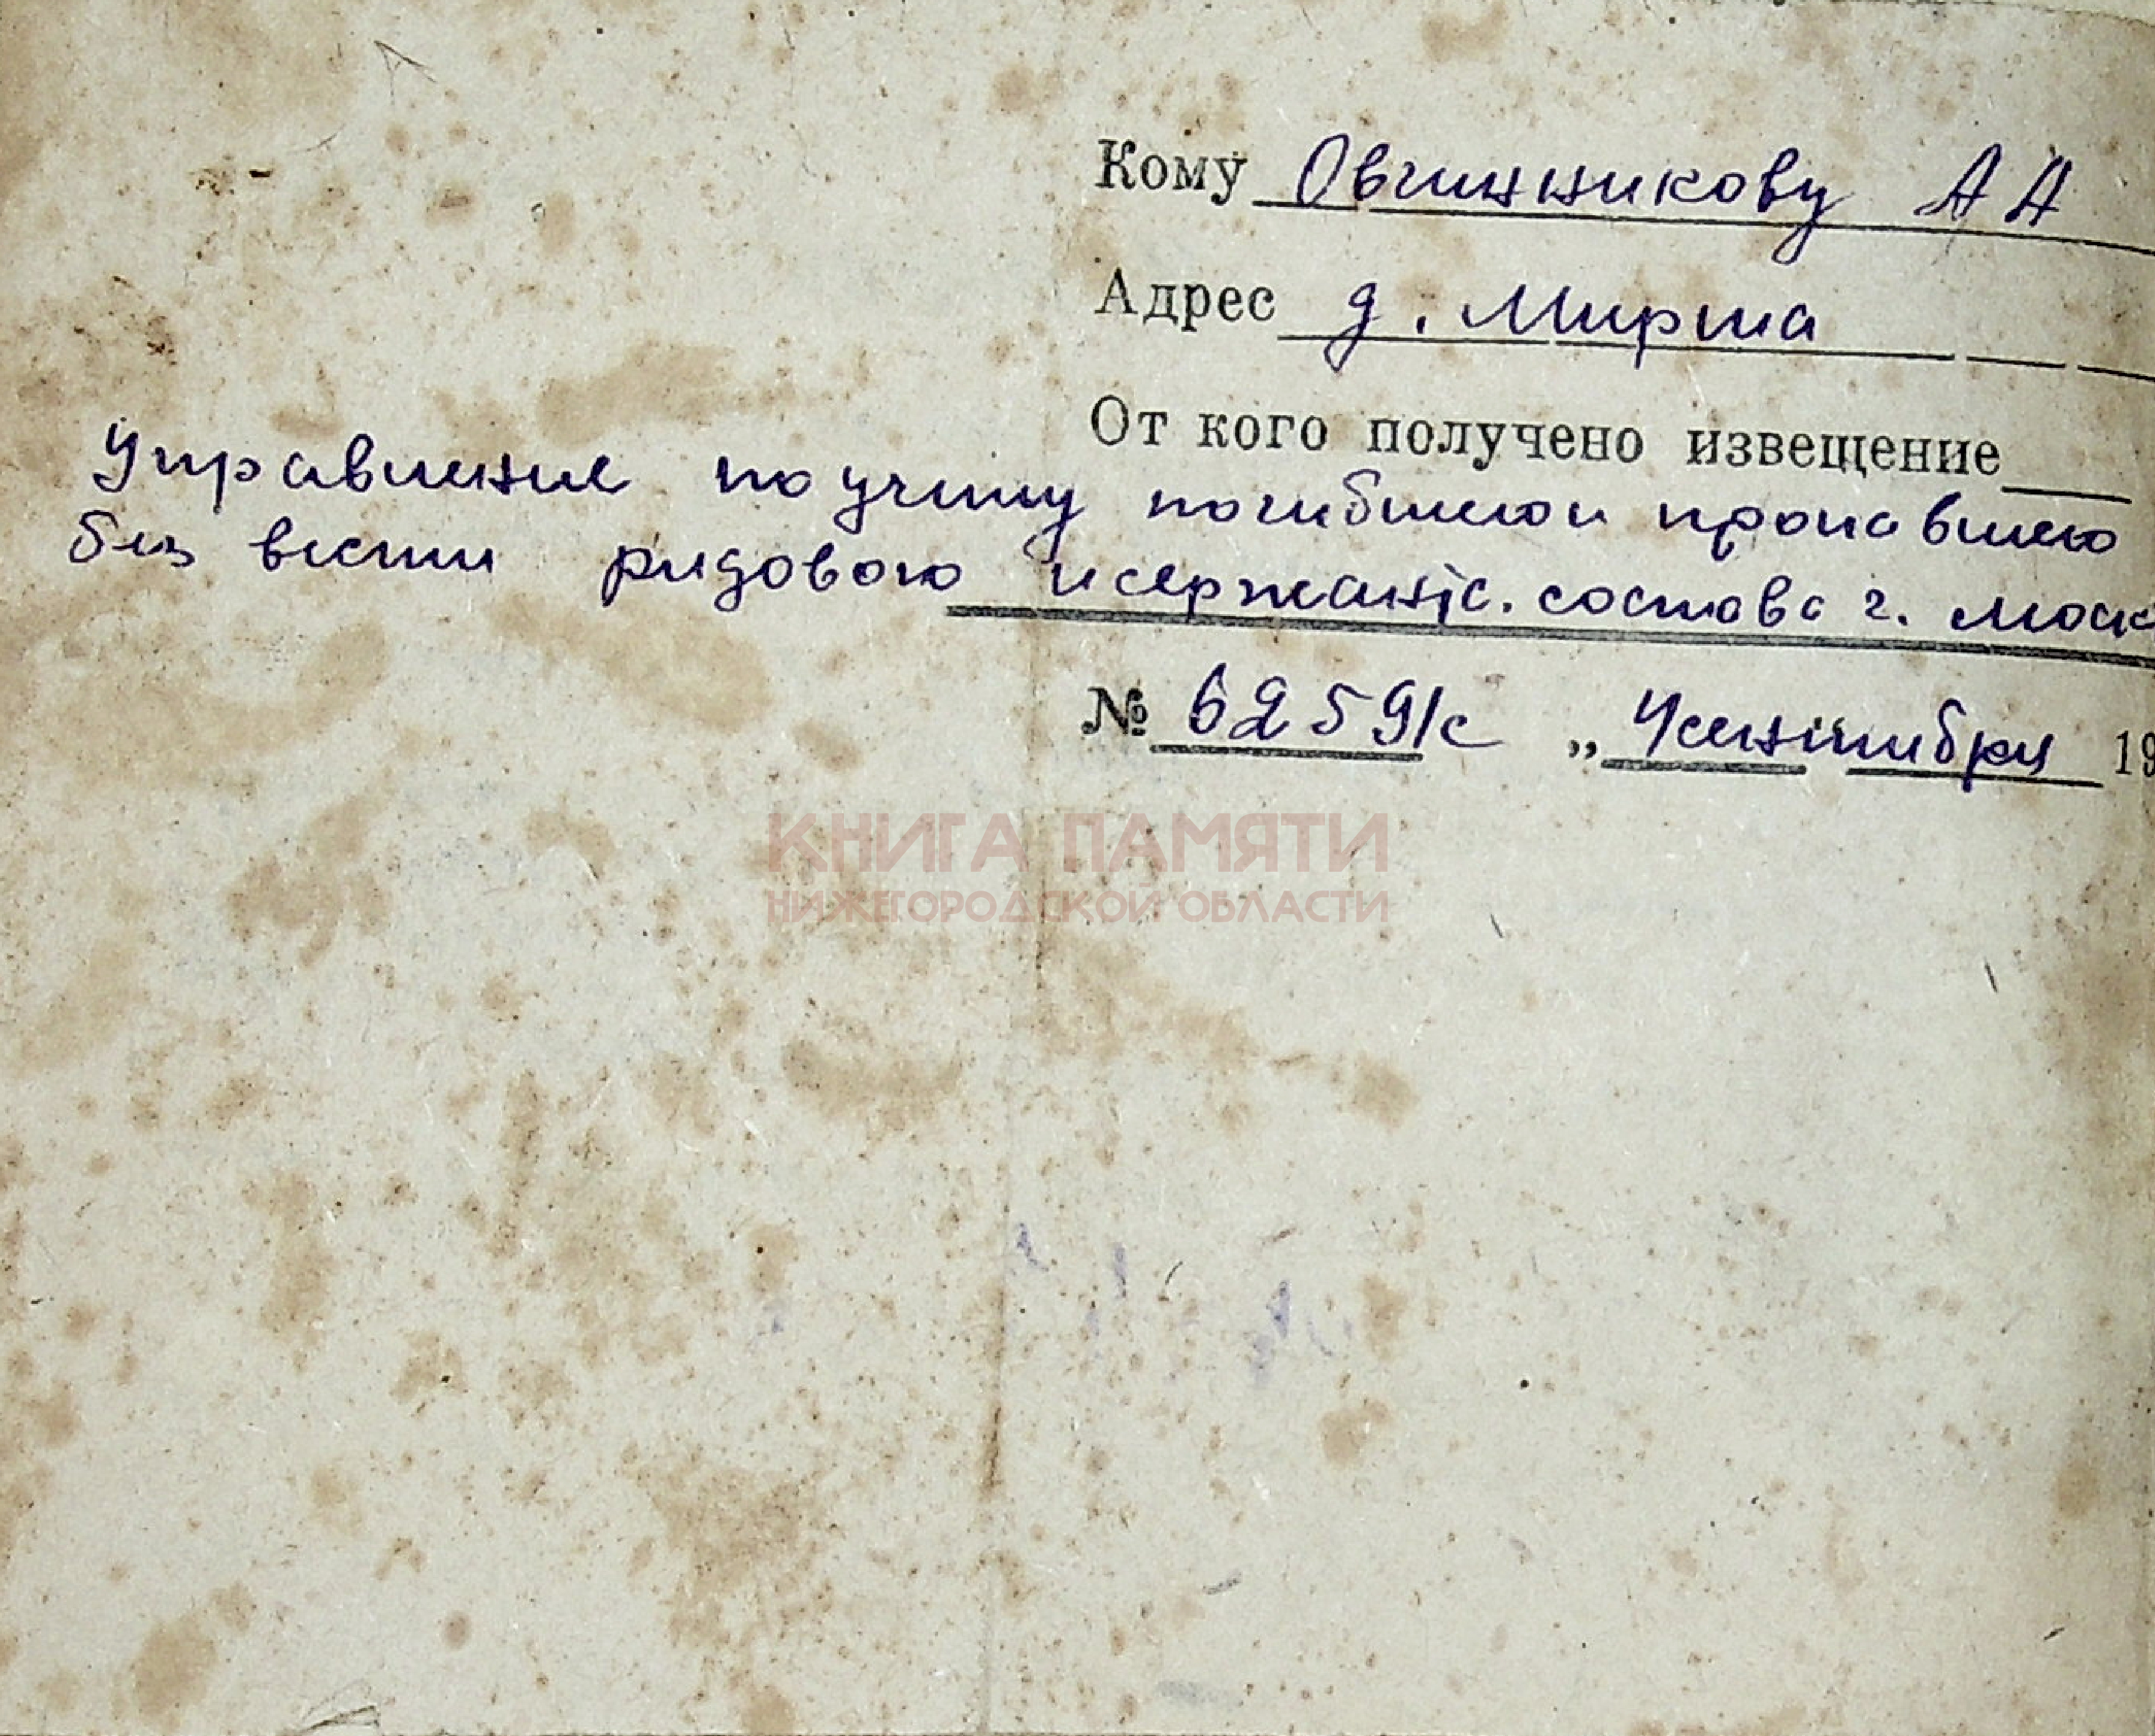 Кому Овчинникову А А
Адрес д. Мирша
От кого получено извещение
Управление по учету погибшего и пропавшего
без вести рядового и сержантс. состава г. Моск
№ 6259/с „ 4 сентября 19
КНИГА ПАМЯТИ
НИЖЕГОРОДСКОЙ ОБЛАСТИ